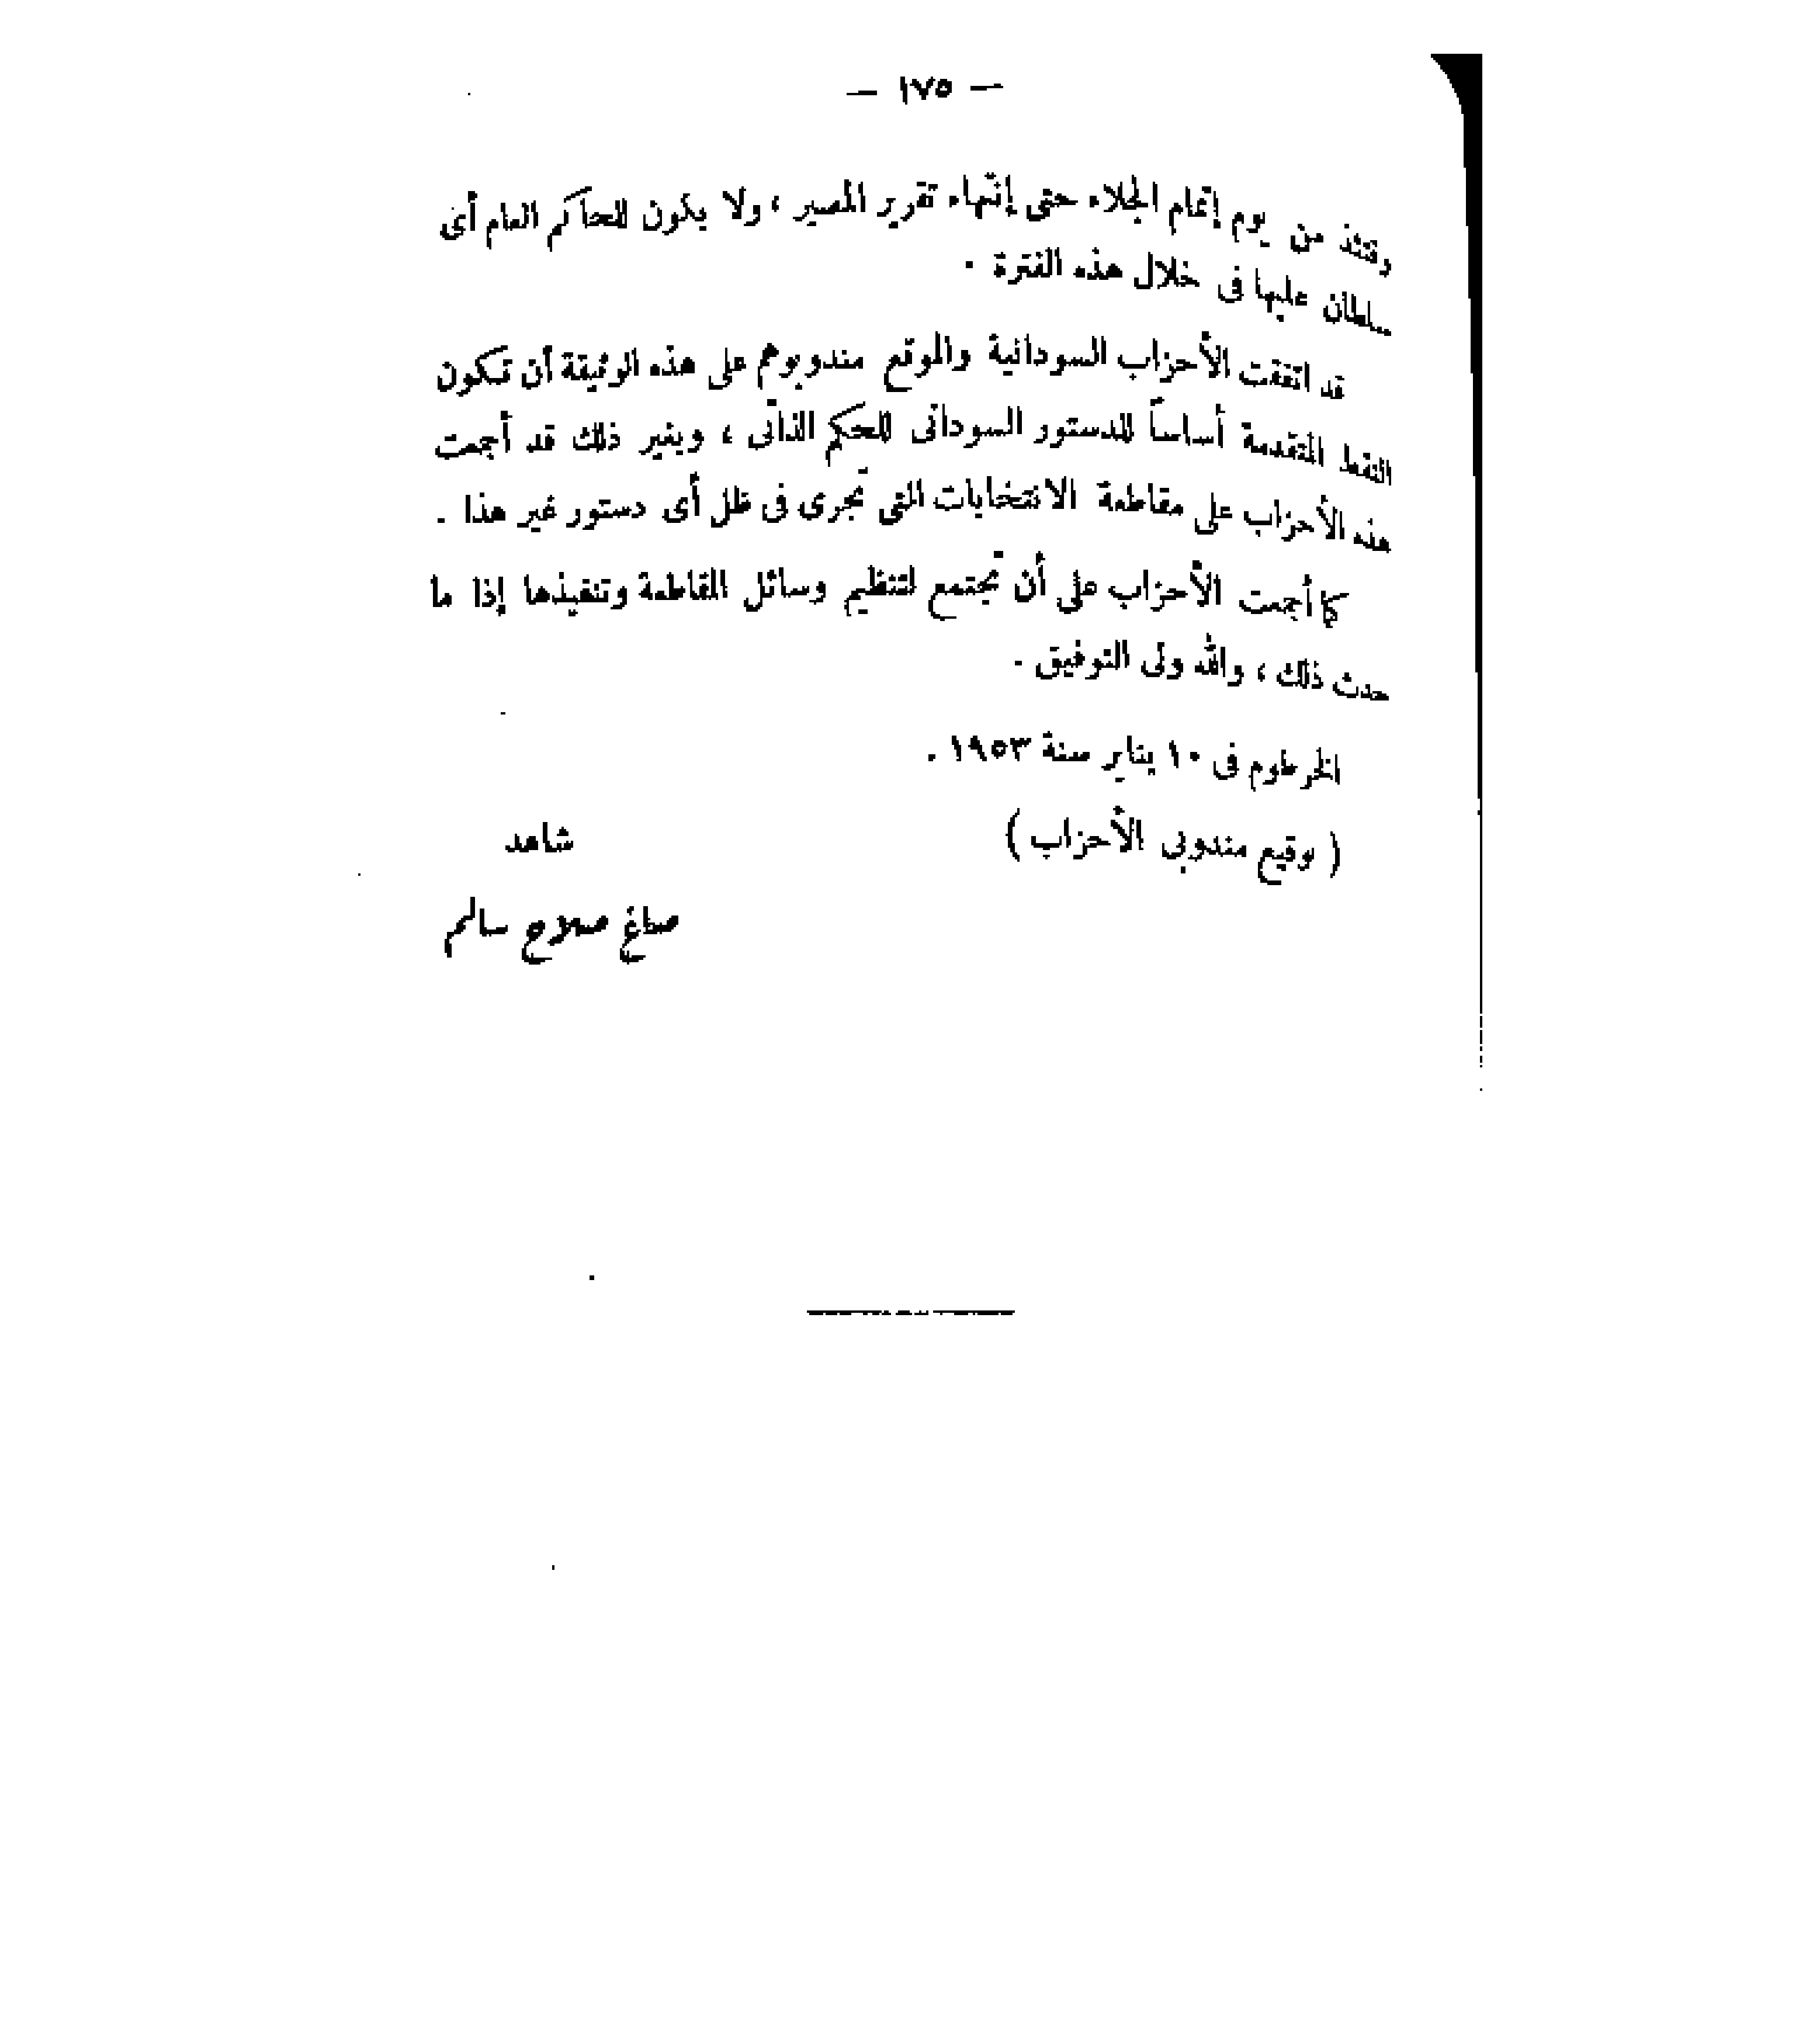 — ١٧٥ —
وقتئذ من يوم إتمام الجلاء حتى إنتهاء تقرير المصير ، ولا يكون للحاكم العام أى
سلطان عليها فى خلال هذه الفترة .
قد اتفقت الأحزاب السودانية والموقع مندوبوهم على هذه الوثيقة أن تكون
النقط المتقدمة أساساً للدستور السودانى للحكم الذاتى ، وبغير ذلك قد أجمعت
هذه الأحزاب على مقاطعة الانتخابات التى تجرى فى ظل أى دستور غير هذا .
كما أجمعت الأحزاب على أن تجتمع لتنظيم وسائل المقاطعة وتنفيذها إذا ما
حدث ذلك ، والله ولى التوفيق .
الخرطوم فى ١٠ يناير سنة ١٩٥٣ .
( توقيع مندوبى الأحزاب ) شاهد
صاغ صلاح سالم